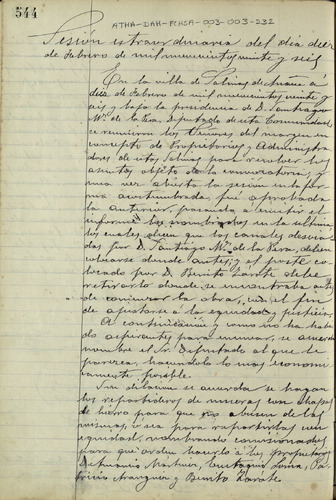 544
ATHA-DAH-FCHSA-003-003-232
Sesión extraordinaria del dia diez
de Febrero de mil novecientos veinte y seis
En la villa de Salinas de Añana a
diez de Febrero de mil novecientos veinte y
seis y bajo la presidencia de D. Santiago
Mª de la Diputado de esta Comunidad
se reunieron los Señores del margen en
concepto de Propietarios y Administra
dores de estas Salinas para resolver los
asuntos objeto de la convocatoria, y
una vez abierta la sesion en la for
ma acostumbrada fué aprobada
la anterior, pasando a emitir el
informe los nombrados en la ultima
los cuales dicen que los canales desvia
dos por D. Santiago Mª de la deben
colocarse donde antes; y el poste co
locado por D. Benito Zarate debe
retirarlo donde se encontraba antes
de comenzar la obra, con el fin
de ajustarse a la equidad y justicia.
A continuación y como no ha habi
do aspirantes para se acuerda
nombre el Sr. Diputado al que le
parezca, haciendolo lo mas economi
camente posible.
Sin dilacion se acuerda se hagan
los repartidores de mueras con chapas
de hierro para que no abusen de las
mismas, o sea para repartirlas con
equidad, nombrando comisionados
para que ordene hacerlo a los propietarios
D. Eustaquio Pa
tricio Aranguiz y Benito Zarate.